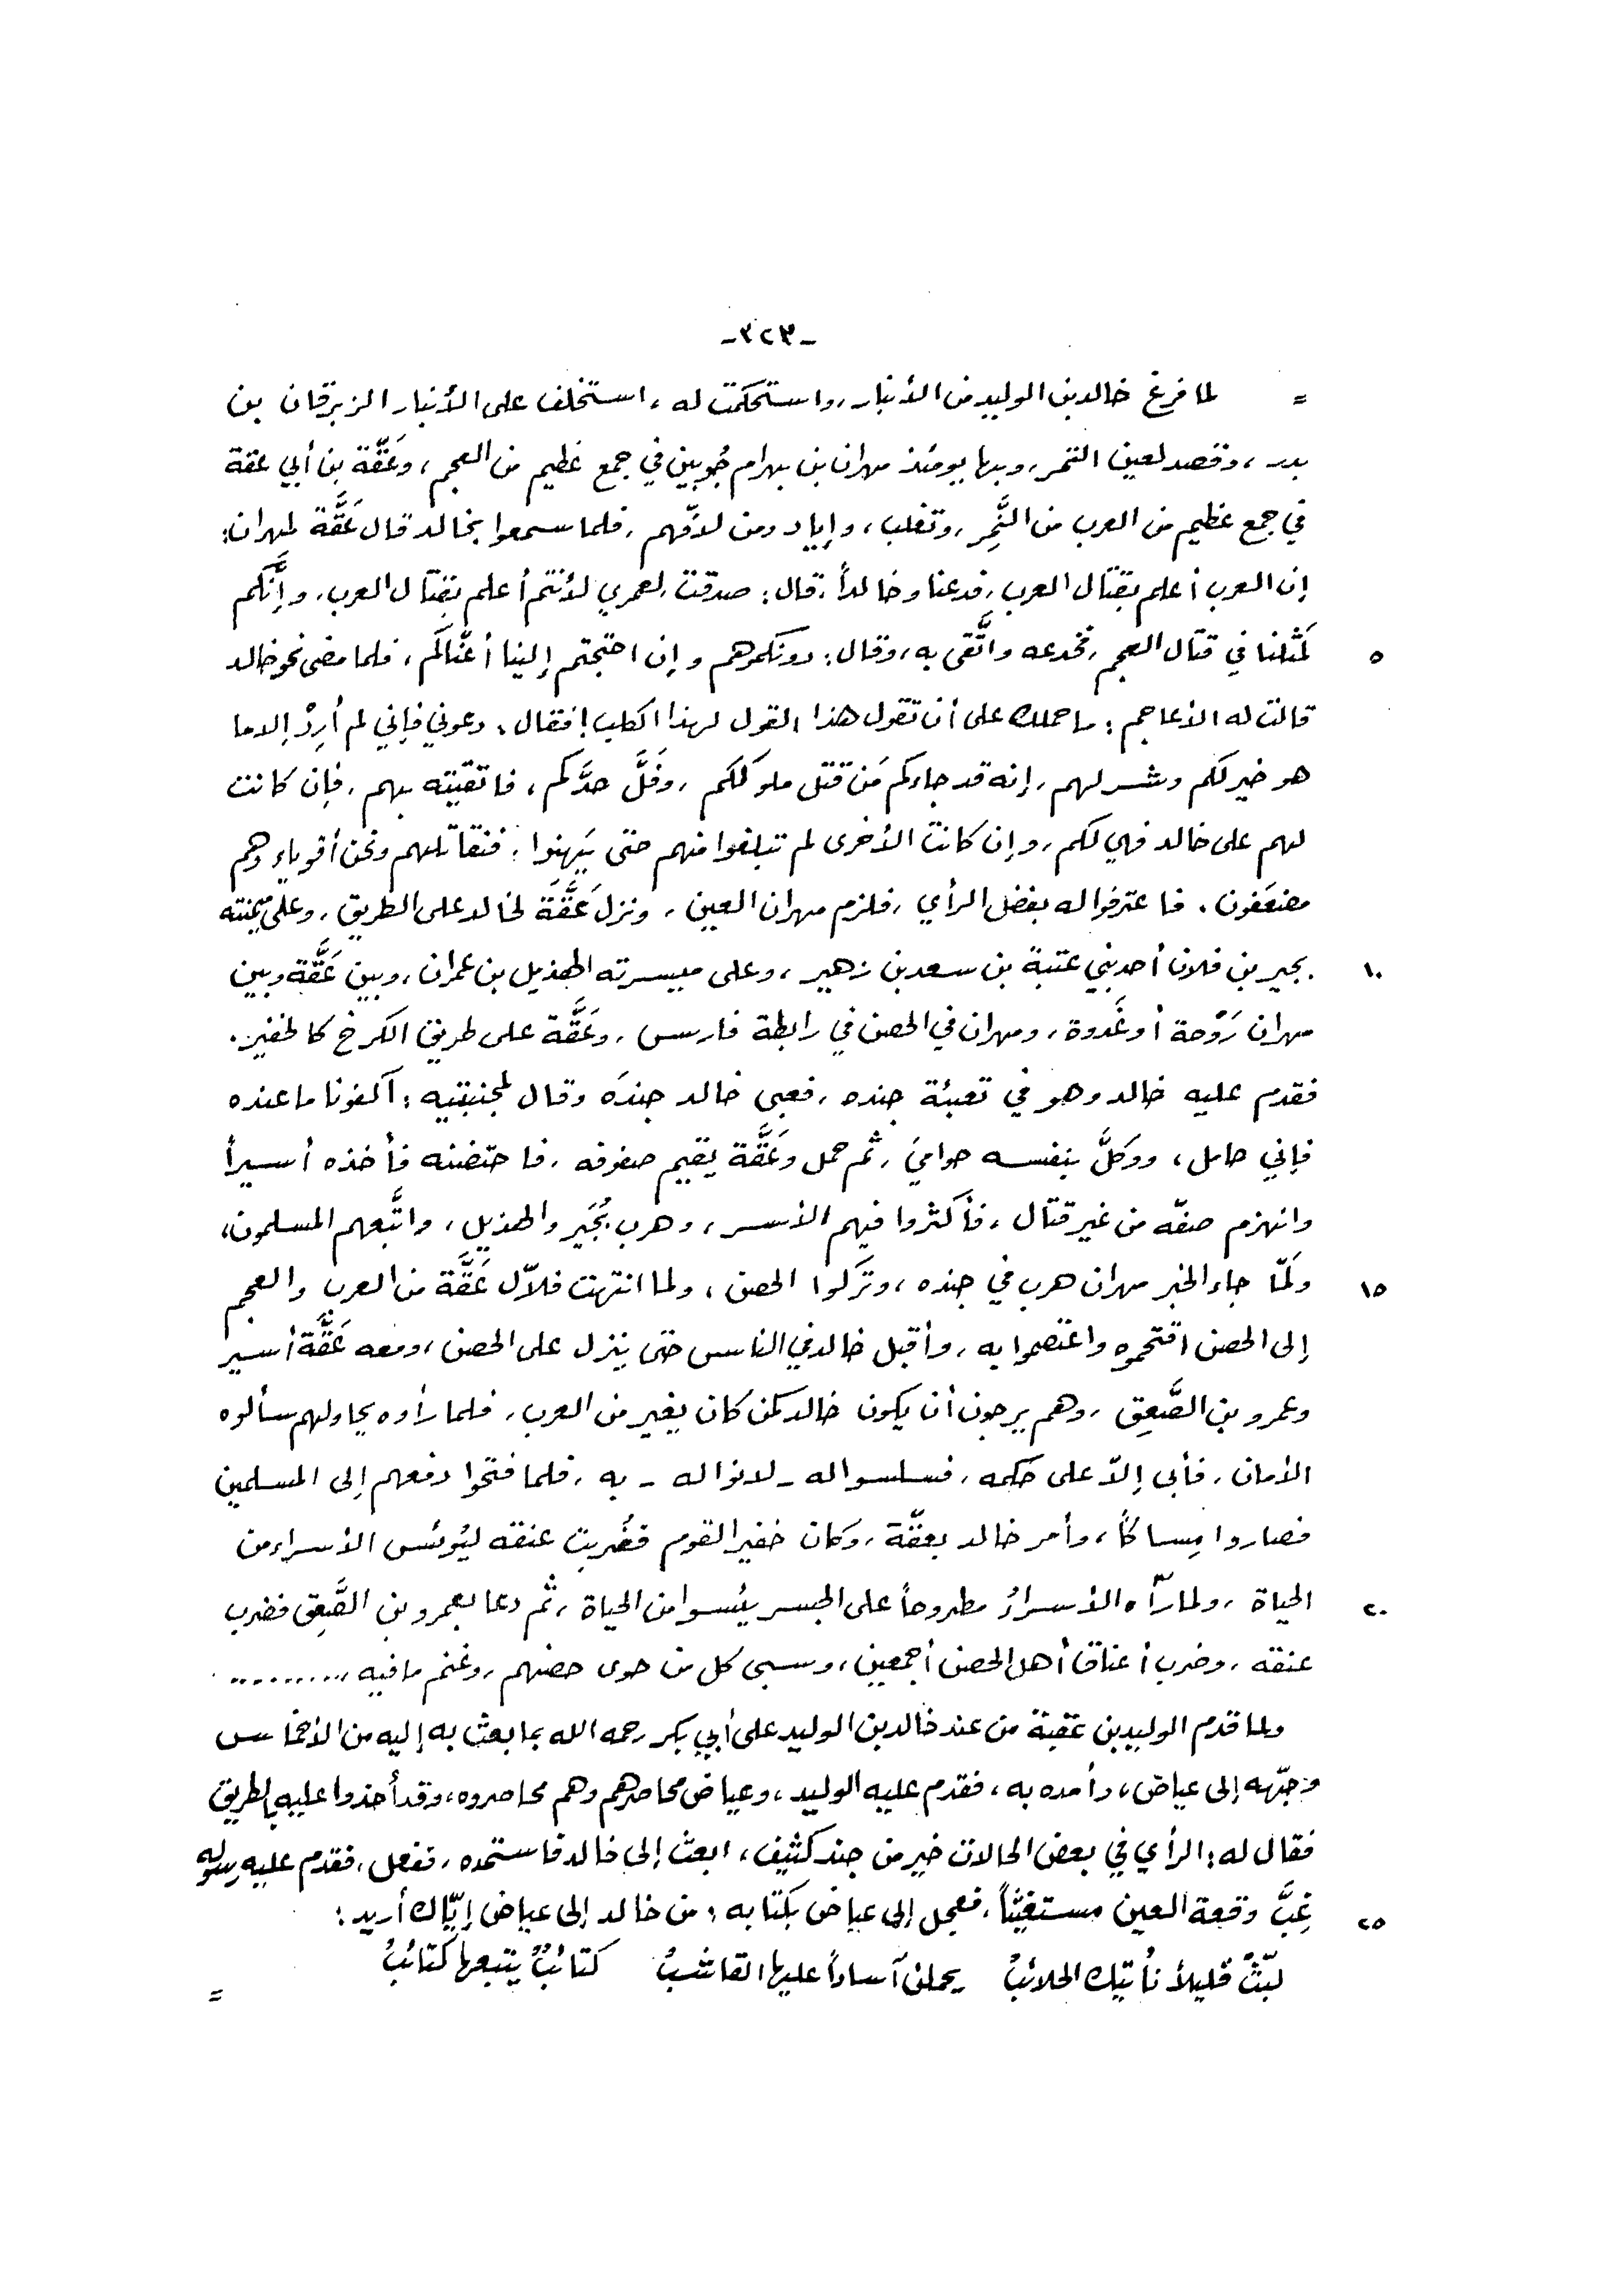 -٣٢٣-
= لما فرغ خالد بن الوليد من الأنبار، واستحكمت له، استخلف على الأنبار الزبرقان بن
بدر، وقصد لعين التمر، وبها يومئذ مهران بن بهرام جُوبين في جمع عظيم من العجم، وعَقَّة بن أبي عقة
في جمع عظيم من العرب من النَّمِر، وتغلب، وإياد ومن لافّهم، فلما سمعوا بخالد قال عَقَّة لمهران:
إن العرب أعلم بقتال العرب، فدعنا وخالداً، قال: صدقت، لعمري لأنتم أعلم بقتال العرب، وإنَّكم
٥ لمثلنا في قتال العجم، فخدعه واتَّقى به، وقال: دونكموهم وإن احتجتم إلينا أعنّاكم، فلما مضى نحو خالد
قالت له الأعاجم: ما حملك على أن تقول هذا القول لهذا الكلب! فقال: دعوني فإني لم أُرِدْ إلا ما
هو خير لكم وشر لهم، إنه قد جاءكم مَن قتل ملوككم، وفَلَّ حدَّكم، فاتقيته بهم، فإن كانت
لهم على خالد فهي لكم، وإن كانت الأخرى لم تبلغوا منهم حتى يَهِنوا، فنقاتلهم ونحن أقوياء وهم
مضعَفون. فاعترفوا له بفضل الرأي، فلزم مهران العين، ونزل عَقَّةَ لخالد على الطريق، وعلى يمنته
١٠ بجير بن فلان أحد بني عتبة بن سعد بن زهير، وعلى ميسرته الهذيل بن عمران، وبين عَقَّة وبين
مهران رَوْحة أو غَدوة، ومهران في الحصن في رابطة فارس، وعَقَّة على طريق الكرخ كالخفير.
فقدم عليه خالد وهو في تعبئة جنده، فعبى خالد جندَه وقال لمجنبتيه: اكفونا ما عنده
فإني حامل، ووكلَّ بنفسه حوامي، ثم حمل وعَقَّة يقيم صفوفه، فاحتضنه فأخذه أسيراً
وانهزم صفّه من غير قتال، فأكثروا فيهم الأسر، وهرب بُجَير والهذيل، واتَّبعهم المسلمون،
١٥ ولمّا جاء الخبر مهران هرب في جنده، وتركوا الحصن، ولما انتهت فلّال عَقَّة من العرب والعجم
إلى الحصن اقتحموه واعتصموا به، وأقبل خالد في الناس حتى ينزل على الحصن، ومعه عَقَّة أسير
وعمرو بن الصَّعِق، وهم يرجون أن يكون خالد كمن كان يغير من العرب، فلما رأوه يحاولهم سألوه
الأمان، فأبى إلّا على حكمه، فسلسوا له - لانوا له - به، فلما فتحوا دفعهم إلى المسلمين
فصاروا مِساكاً، وأمر خالد بعقّة، وكان خفير القوم فضُربت عنقه ليُوئس الأسراء من
٢٠ الحياة، ولما رآه الأسراءُ مطروحاً على الجسر يئسوا من الحياة، ثم دعا بعمرو بن الصَّعِق فضرب
عنقه، وضرب أعناق أهل الحصن أجمعين، وسبى كل من حوى حصنهم، وغنم ما فيه، .........
ولما قدم الوليد بن عقبة من عند خالد بن الوليد على أبي بكر رحمه الله بما بعث به إليه من الأخماس
وجّهه إلى عياض، وأمده به، فقدم عليه الوليد، وعياض محاصرهم وهم محاصروه، وقد أخذوا عليه بالطريق
فقال له: الرأي في بعض الحالات خير من جند كثيف، ابعث إلى خالد فاستمده، ففعل، فقدم عليه رسوله
٢٥ غِبَّ وقعة العين مستغيثاً، فعجل إلى عياض بكتابه: من خالد إلى عياض إيّاك أريد:
لبّثْ قليلاً تأتيك الحلائبُ يحملن آساداً عليها القاشبُ كتائبٌ يتبعها كتائبُ
=